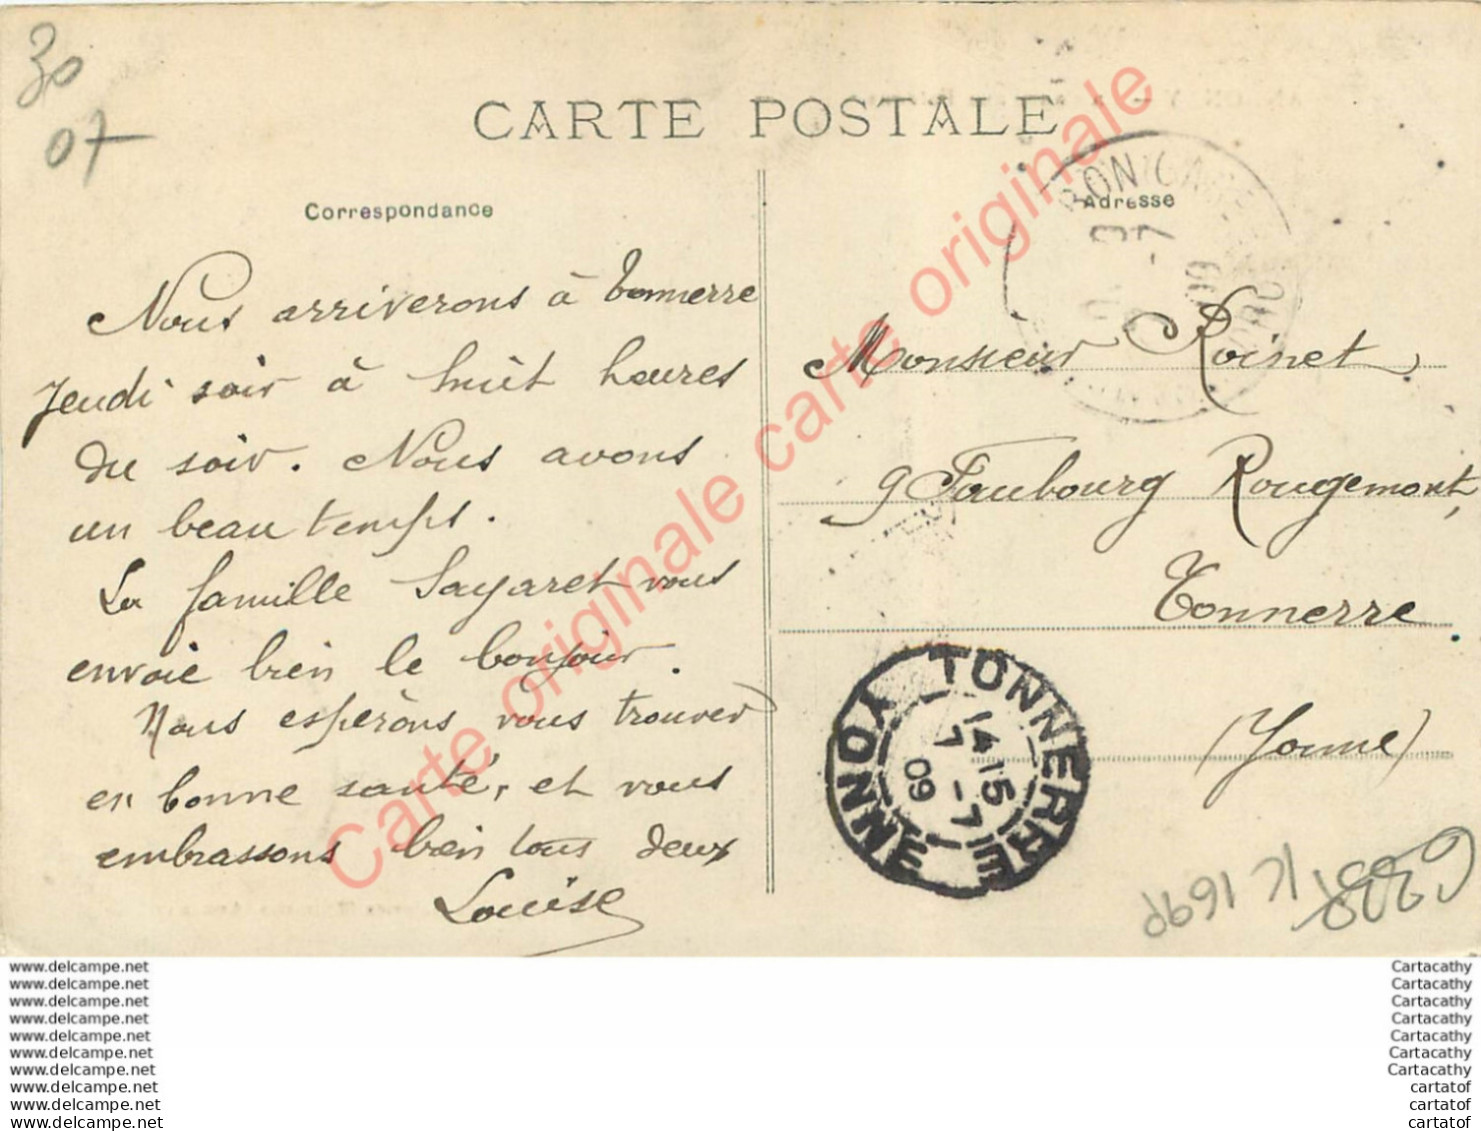 30
07
CARTE POSTALE
Correspondance
Adresse
Nous arriverons à Tonnerre
Jeudi soir à huit heures
du soir. Nous avons
un beau temps.
La famille Sayaret vous
envoie bien le bonjour.
Nous espérons vous trouver
en bonne santé, et vous
embrassons bien tous deux
Louise
Monsieur Roinet
9 Faubourg Rougemont,
Tonnerre
(Yonne)
TONNERRE
14 15
7 - 7
09
YONNE
Carte originale carte originale Carte originale
www.delcampe.net
www.delcampe.net
www.delcampe.net
www.delcampe.net
www.delcampe.net
www.delcampe.net
www.delcampe.net
www.delcampe.net
www.delcampe.net
www.delcampe.net
Cartacathy
Cartacathy
Cartacathy
Cartacathy
Cartacathy
Cartacathy
Cartacathy
cartatof
cartatof
cartatof